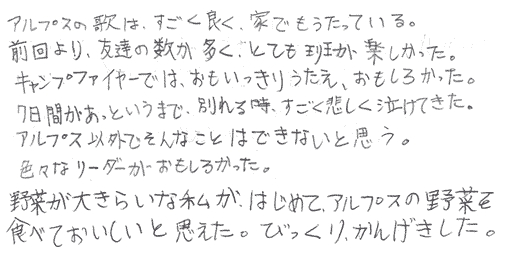 アルプスの歌は、すごく良く、家でもうたっている。
前回より、友達の数が多く、とても班が楽しかった。
キャンプファイヤーでは、おもいっきりうたえ、おもしろかった。
7日間があっというまで、別れる時、すごく悲しく泣けてきた。
アルプス以外でそんなことはできないと思う。
色々なリーダーがおもしろかった。
野菜が大きらいな私が、はじめて、アルプスの野菜を
食べておいしいと思えた。びっくり、かんげきした。